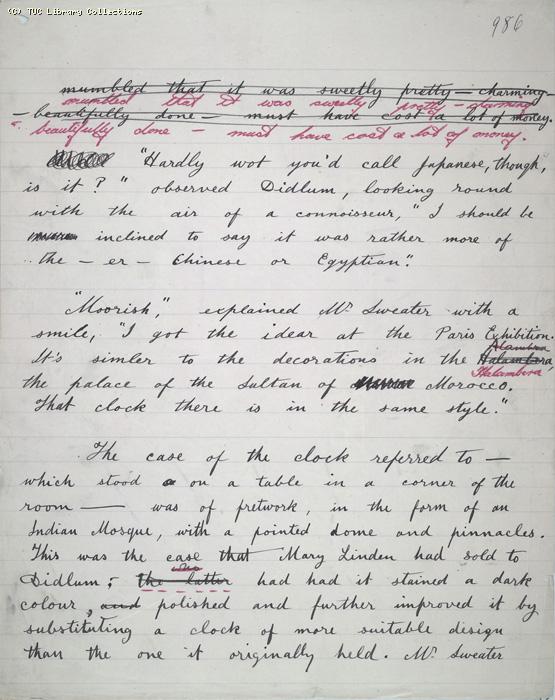 (C) TUC Library Collections
986
mumbled that it was sweetly pretty — charming —
mumbled that it was sweetly pretty — charming
— beautifully done — must have cost a lot of money.
beautifully done — must have cost a lot of money.
"Hardly wot you'd call Japanese, though,
is it?" observed Didlum, looking round
with the air of a connoisseur, "I should be
inclined to say it was rather more of
the — er — Chinese or Egyptian".
"Moorish," explained Mr Sweater with a
smile, "I got the idear at the Paris Exhibition.
Alambra
It's simler to the decorations in the Halambara,
Halambera
the palace of the Sultan of Morocco.
That clock there is in the same style."
The case of the clock referred to —
which stood on a table in a corner of the
room — was of fretwork, in the form of an
Indian Mosque, with a pointed dome and pinnacles.
This was the case that Mary Linden had sold to
who
Didlum; the latter had had it stained a dark
colour, and polished and further improved it by
substituting a clock of more suitable design
than the one it originally held. Mr Sweater